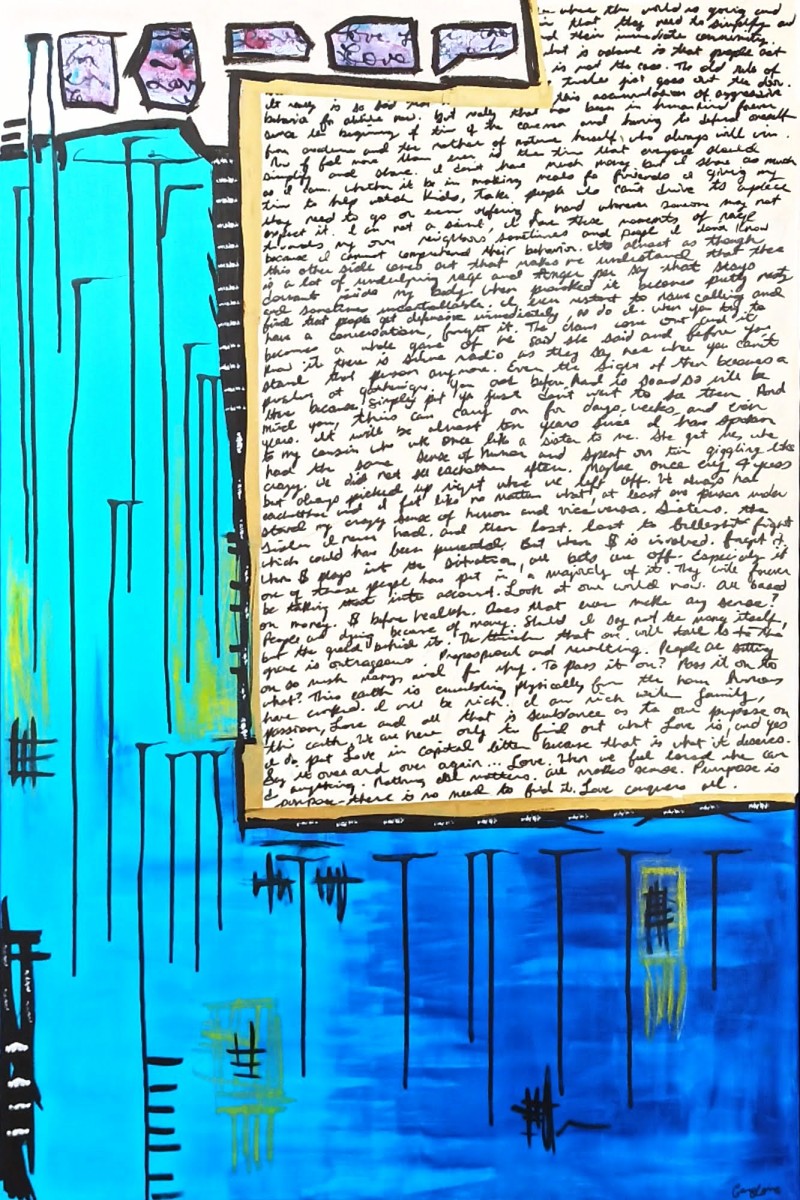 when the world is going and
that they need to simplify and
their immediate community.
is that people act
is not the case. The old rule of
just goes out the door.
this accumulation of aggressive
it really is so bad
behavior for awhile now. But really that has been in humankind forever
since the beginning of time of the caveman and having to defend oneself
from and the mother of nature herself, who always will win.
Now I feel more than ever is the time that everyone should
simplify and share. I don't have much money but I share as much
as I can. Whether it be in making meals for friends or giving my
time to help watch kids, take people who can't drive to a place
they need to go or even offering a hand wherever someone may not
expect it. I am not a saint, I have these moments of rage
towards my own neighbors sometimes and people I don't know
because I cannot comprehend their behavior. It's almost as though
this other side comes out that makes me understand that there
is a lot of underlying rage and anger per say that stays
inside my body. When provoked it becomes pretty nasty
and sometimes uncontrollable. I even to name calling and
find that people get defensive immediately, as do I. When you try to
have a conversation, forget it. The claws come out and it
becomes a whole game of he said she said and before you
know it there is silence radio as they say, here you can't
stand that person anymore. Even the sight of them becomes a
problem at gatherings. You ask before hand is so and so will be
there because, simply put you just don't want to see them. And
mind you, this can carry on for days, weeks, and even
years. It will be almost ten years since I have spoken
to my cousin who was once like a sister to me. She got me, we
had the same sense of humor and spent our time giggling like
crazy. We did not see each other often. Maybe once every 4 years
but always picked up right where we left off. We always had
each other and I felt like no matter what, at least one person under
stood my crazy sense of humor and vice versa. Sisters. the
sister I never had. and then lost. lost to fight
which could have been prevented. But when $ is involved. forget it.
When $ plays into the situation, all bets are off. Especially if
one of those people has put in a majority of it. They will forever
be taking that into account. Look at our world now. All based
on money. $ before health. Does that ever make any sense?
People are dying because of money. Should I say not the money itself,
but the greed behind it. The that one will to the
grave is outrageous. Preposterous and revolting. People are sitting
on so much money and for why. To pass it on? Pass it on to
what? This earth is crumbling physically from the harm humans
have caused. I will be rich. I am rich with family,
passion, Love and all that is substance as to our purpose on
this earth. We are here only to find out what Love is, and yes
I do put Love in capital letters because that is what it deserves.
Say it over and over again... Love. When we feel loved we can
do anything. Nothing else matters. All makes sense. Purpose is
purpose - there is no need to find it. Love conquers all.